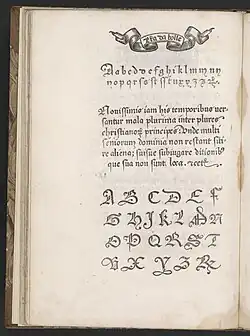 A a b c d v e f g h i k l m m n y
n o p q r s a s t s s t u x y z
Novissimis iam his temporibus ver
santur mala plurima inter plures
christianoꝝ principes Unde multi
seniorum domima non restant siti
re aliena; suisue subiugare ditionibus
que sua non sunt loca.
A B C D E F
G H J K L M N
O P Q R S T
V X Y Z